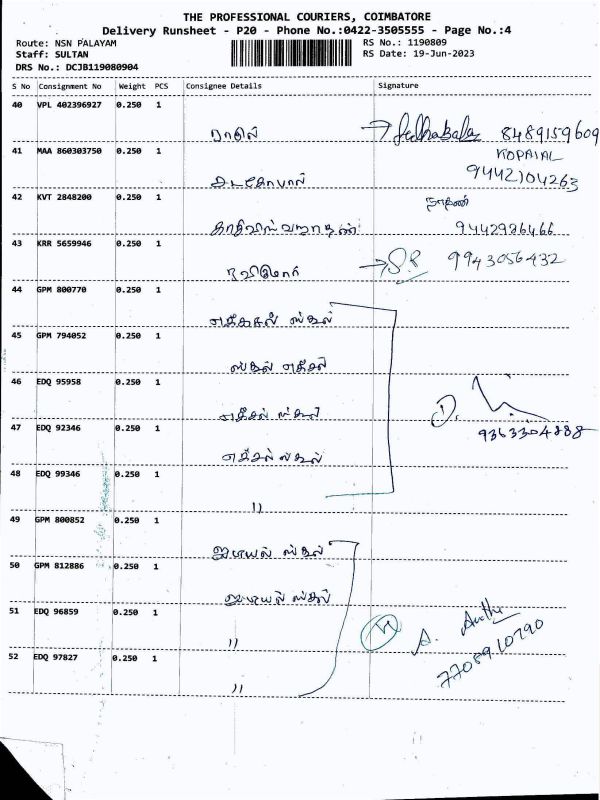 THE PROFESSIONAL COURIERS, COIMBATORE
Delivery Runsheet - P20 - Phone No.:0422-3505555 - Page No.:4
Route: NSN PALAYAM RS No.: 1190809
Staff: SULTAN RS Date: 19-Jun-2023
DRS No.: DCJB119080904
S No Consignment No Weight PCS Consignee Details Signature
40 VPL 402396927 0.250 1
8489159609
41 MAA 860303750 0.250 1
9442104263
42 KVT 2848200 0.250 1
9442986466
43 KRR 5659946 0.250 1
S.P 9943056432
44 GPM 800770 0.250 1
எக்கசல் ஸ்கூல்
45 GPM 794052 0.250 1
ஸ்கூல் எக்சல்
46 EDQ 95958 0.250 1
எக்சல் ஸ்கூல்
D.
47 EDQ 92346 0.250 1
9363304888
எக்சல் ஸ்கூல்
48 EDQ 99346 0.250 1
"
49 GPM 800852 0.250 1
ஐடியல் ஸ்கூல்
50 GPM 812886 0.250 1
ஐடியல் ஸ்கூல்
51 EDQ 96859 0.250 1
"
7708910790
52 EDQ 97827 0.250 1
"